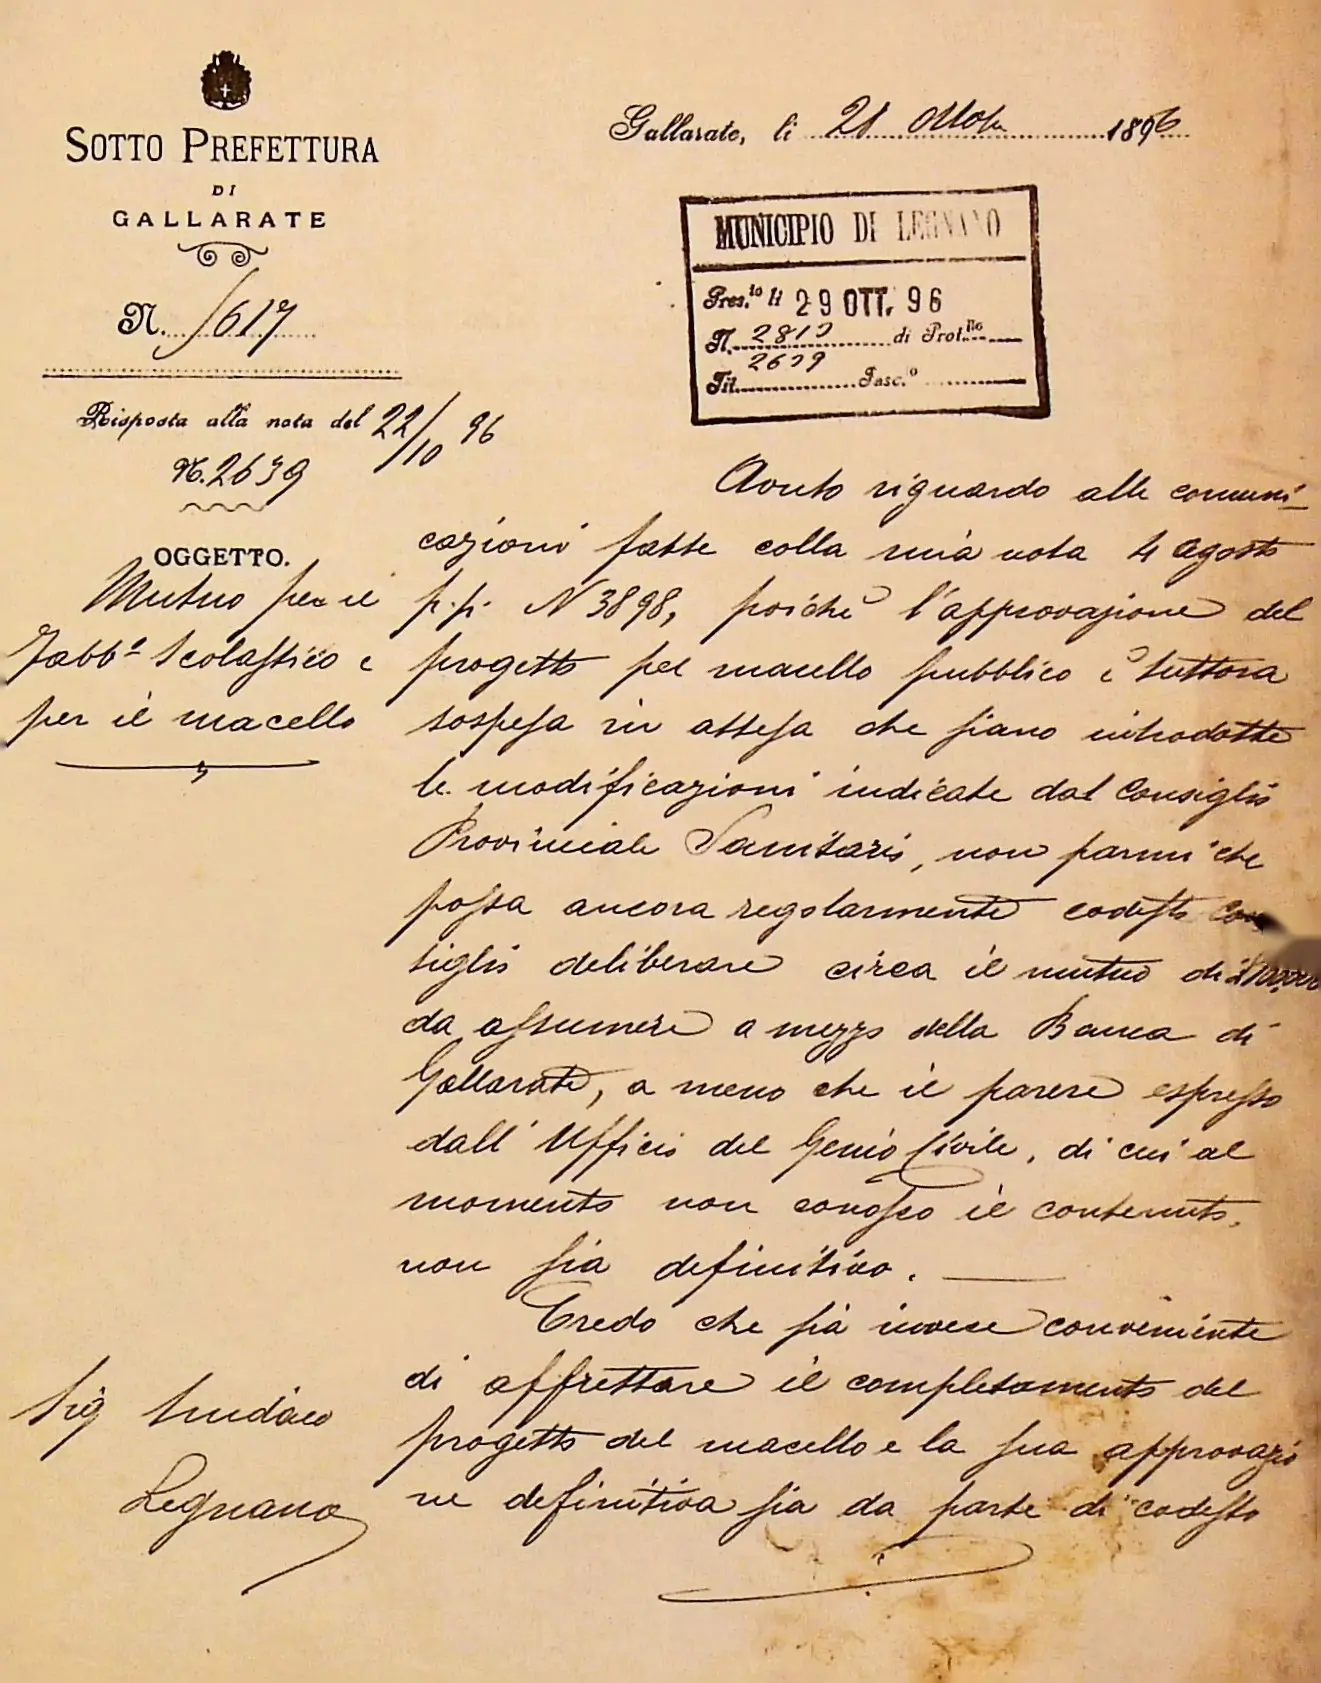 SOTTO PREFETTURA
DI
GALLARATE
N. 5617
Risposta alla nota del 22/10 96
N. 2639
OGGETTO.
Mutuo per il
Fabb.o Scolastico e
per il macello
Gallarate, li 28 Ottob 1896
MUNICIPIO DI LEGNANO
Pres.to li 29 OTT. 96
N. di Prot.llo
Tit. Fasc.o
Avuto riguardo alle comuni
cazioni fatte colla mia nota 4 agosto
p.p. N 3898, poichè l'approvazione del
progetto pel macello pubblico è tuttora
sospesa in attesa che siano introdotte
le modificazioni indicate dal Consiglio
Provinciale Sanitario, non parmi che
possa ancora regolarmente codesto Con
siglio deliberare circa il mutuo di
da assumere a mezzo della Banca di
Gallarate, a meno che il parere espresso
dall' Ufficio del Genio Civile, di cui al
momento non conosco il contenuto,
non sia definitivo.
Credo che sia invece conveniente
di affrettare il completamento del
progetto del macello e la sua approvazio
ne definitiva sia da parte di codesto
Sig Sindaco
Legnano